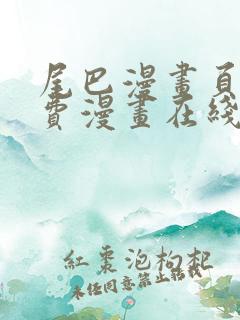 尾巴漫畫頁
費漫畫在綫
紅棗泡枸杞
未任同意禁止轉載